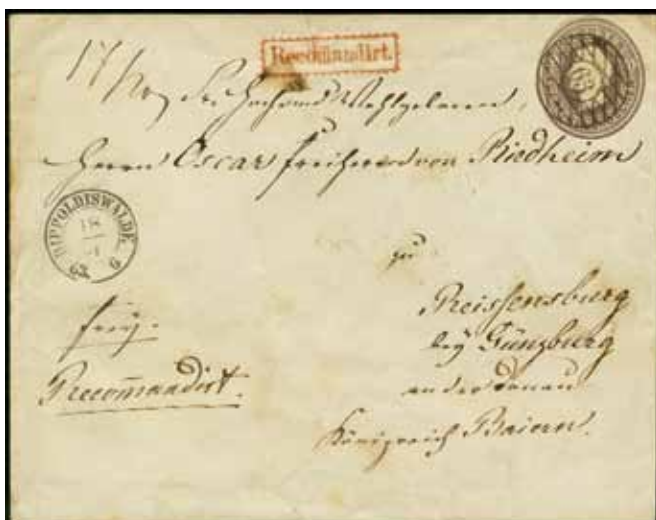 Recommandirt.
Hochwohlgeboren,
Herrn Oscar Freiherrn von Riedheim
DIPPOLDISWALDE
18
63. 6
zu
Reissensburg
bey Günzburg
an der Donau
Königreich Baiern.
frey.
Recom̄andirt.